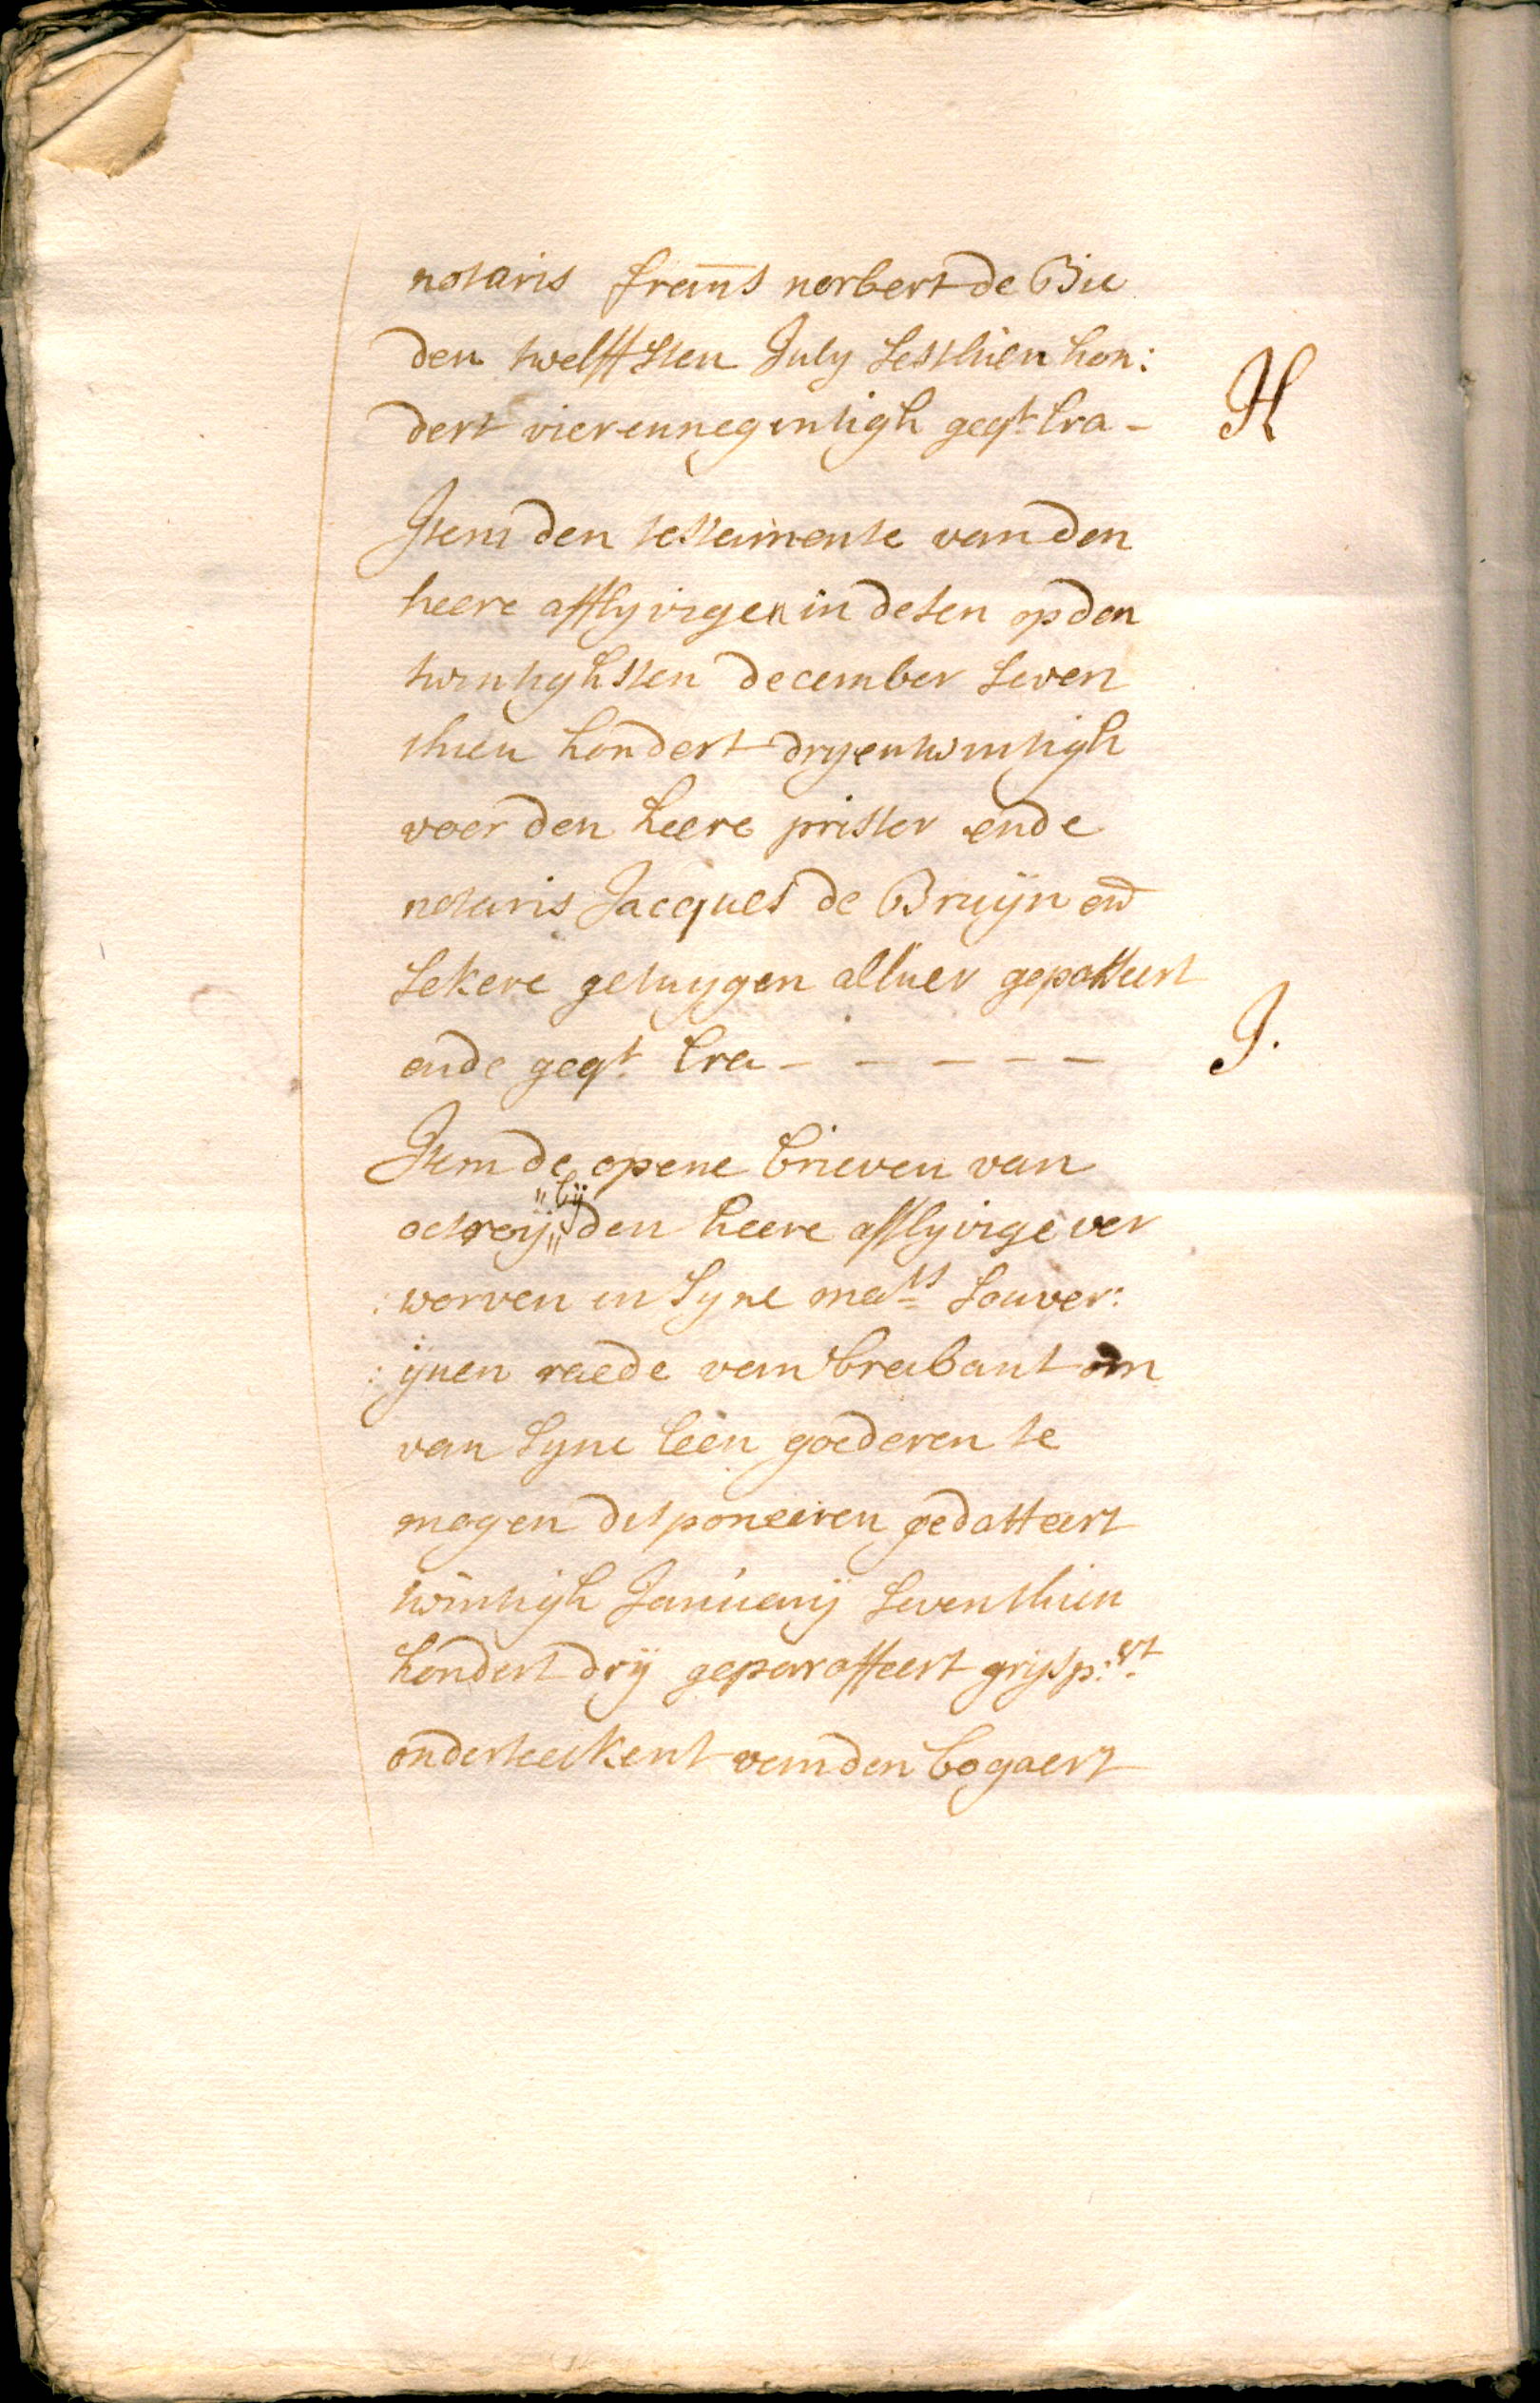 notaris frans norbert de Bie
den twelffsten July sesthien hon:
dert vierennegentigh geqt. Lra - H
Item den testamente van den
heere afflyvigen in desen op den
twintighsten december seven
thien hondert dryentwintigh
voor den heere prister ende
notaris Jacques de Bruÿn end
sekere getuygen alhier gepasseert
ende geqt. Lra - - - - - J.
Item de opene brieven van
"bÿ
octroÿ" den heere afflyvige ver
: worven in syne mats. souver:
: ÿnen raede van brabant om
van syne leen goederen te
mogen disponeeren gedatteert
twintigh Januarÿ seventhien
hondert drÿ geparaffeert grysp:ert.
onderteekent vanden bogaert